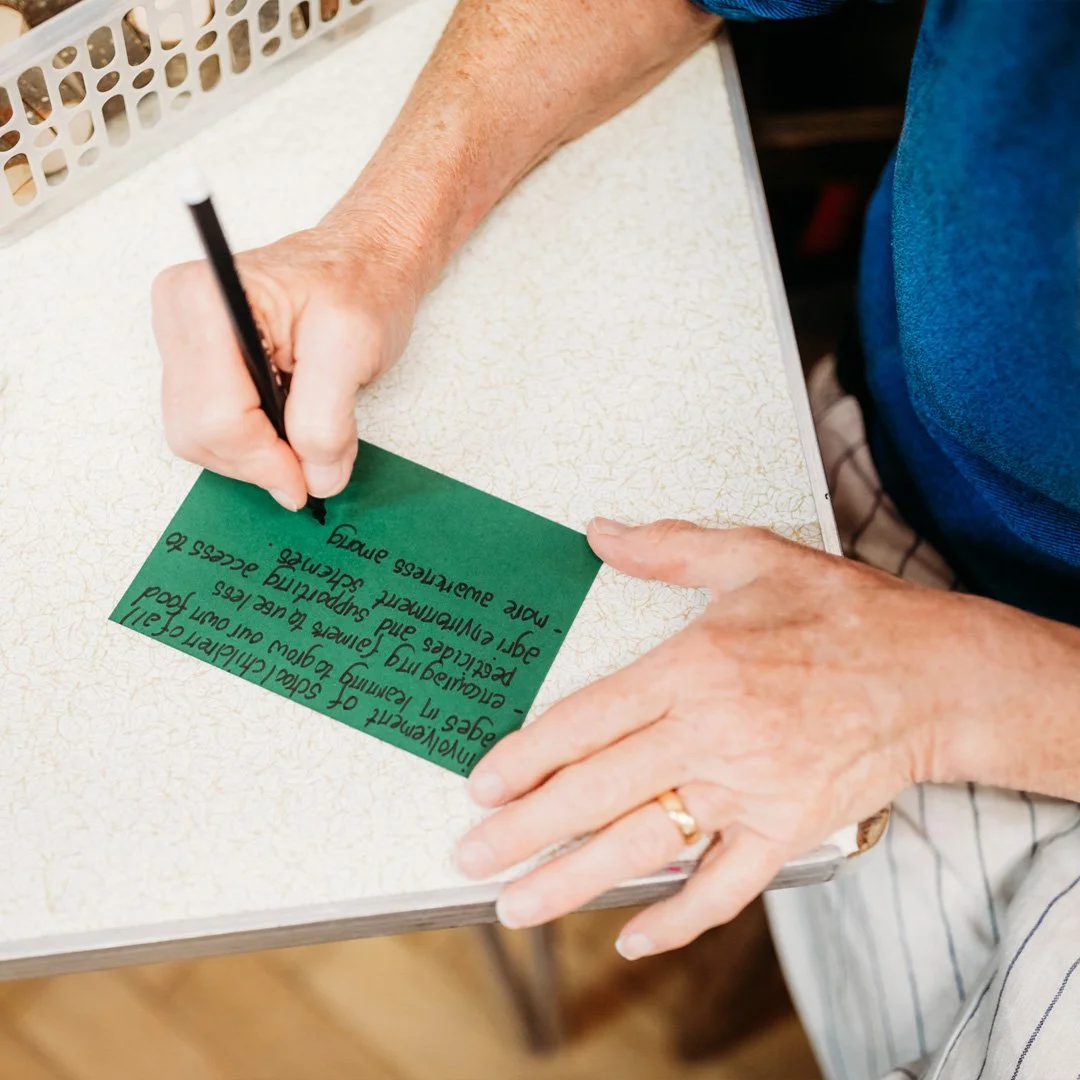 involvement of school children of all
ages in learning to grow our own food
- encouraging farmers to use less
pesticides and supporting access to
agri environment schemes.
- more awareness among